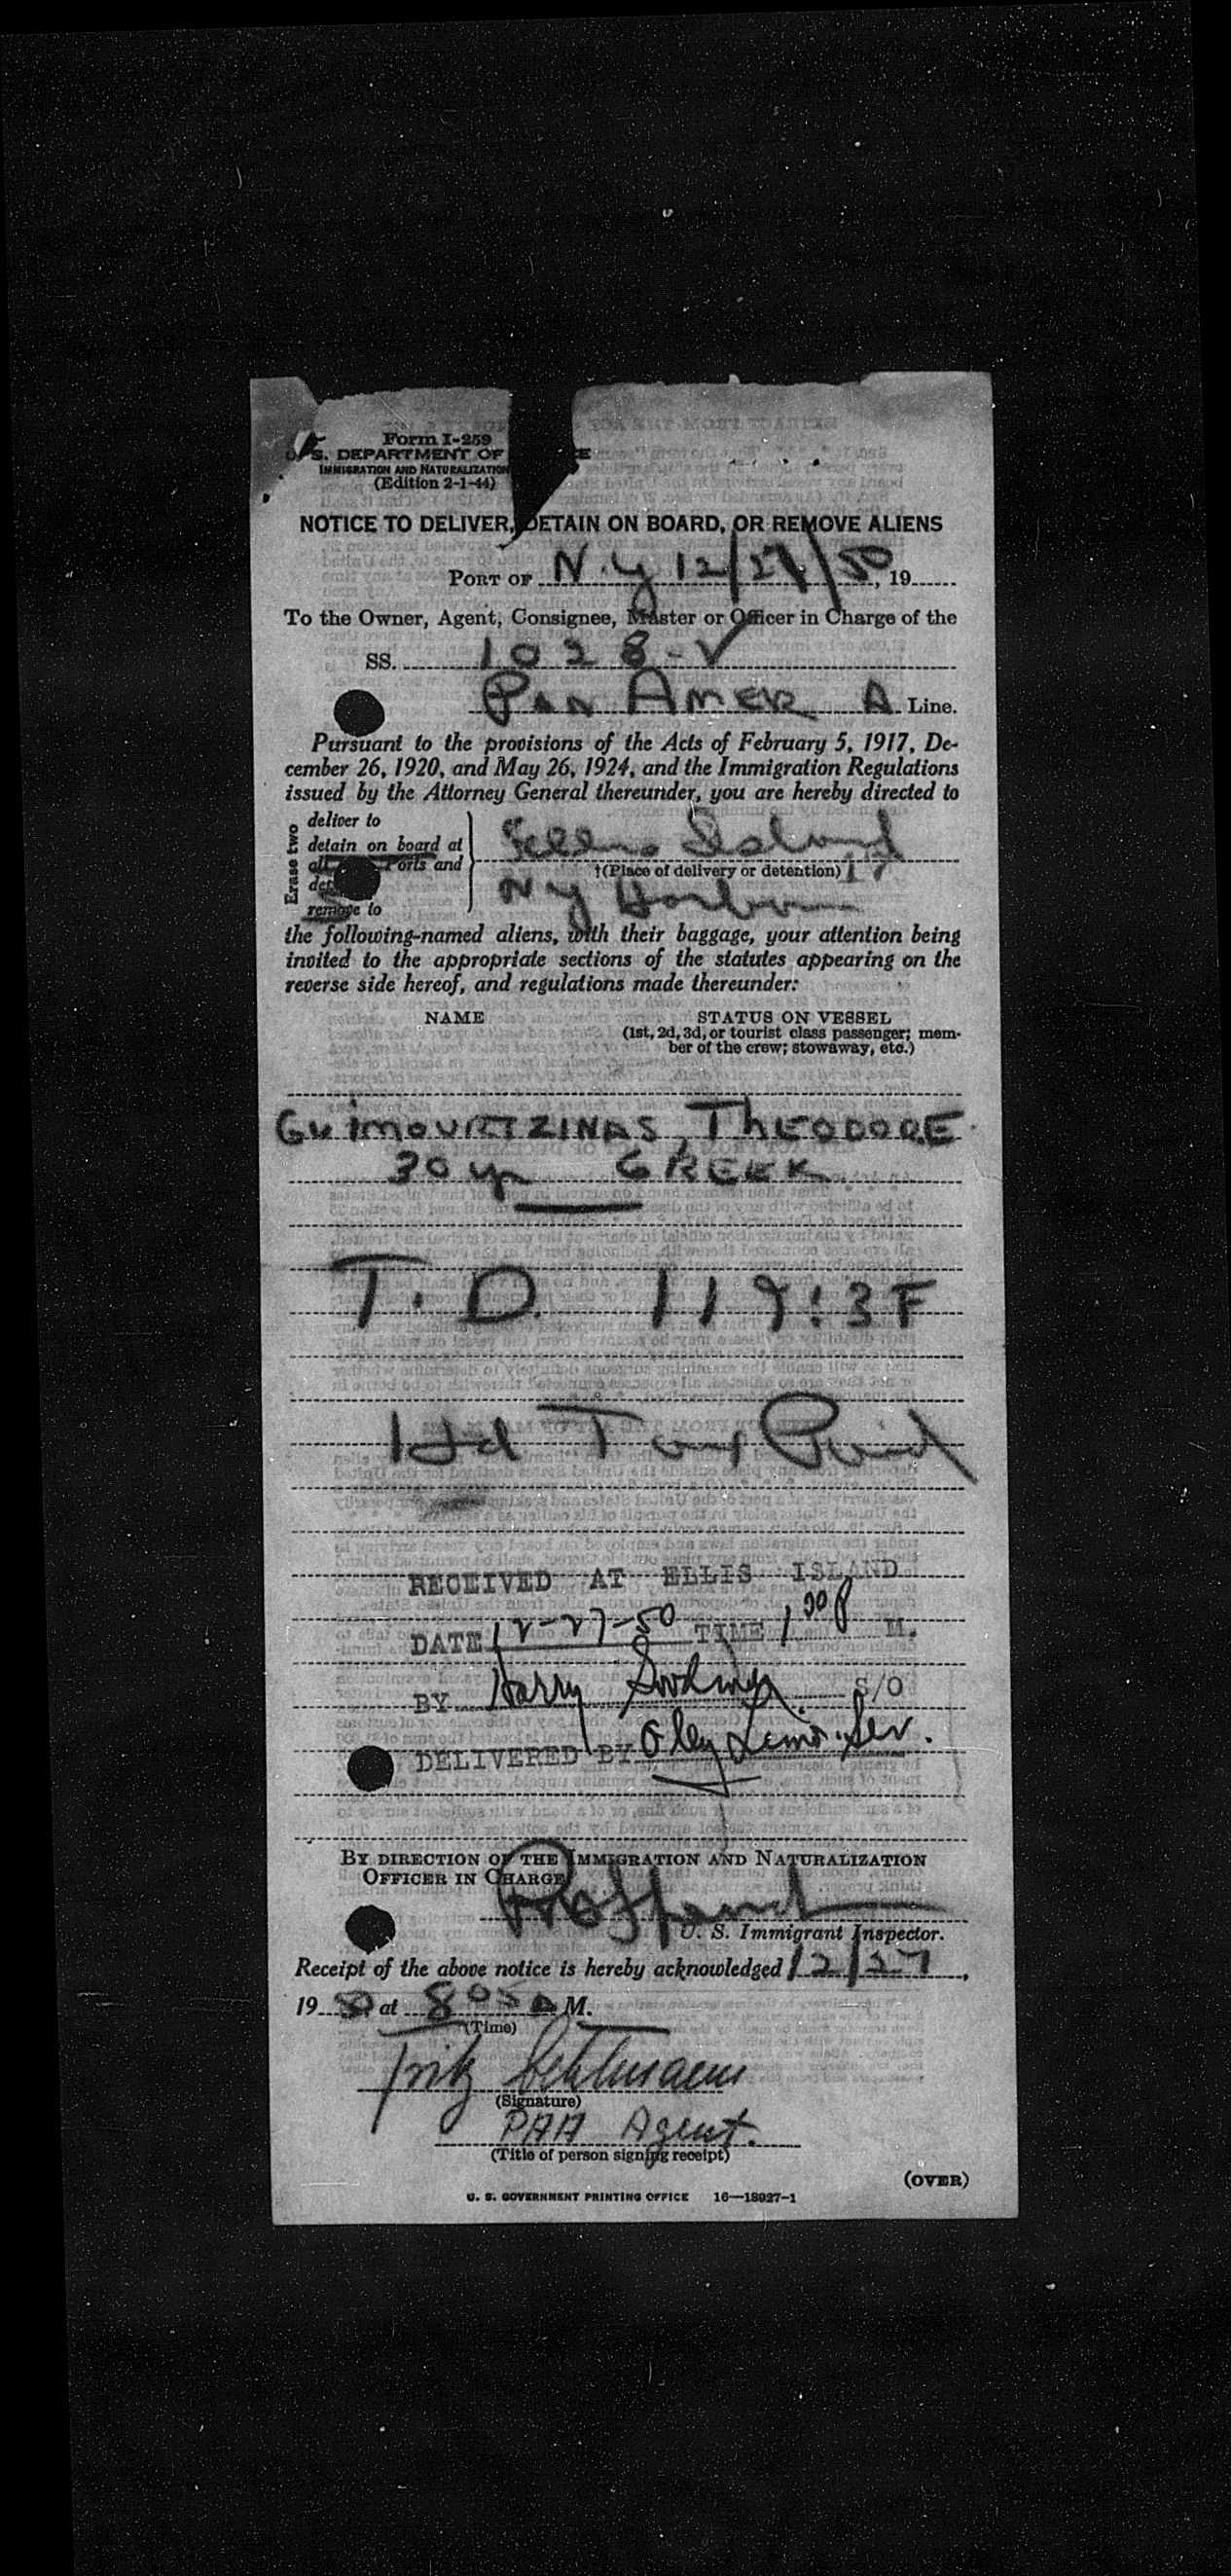 Form I-259
U. S. DEPARTMENT OF
IMMIGRATION AND NATURALIZATION
(Edition 2-1-44)
NOTICE TO DELIVER, DETAIN ON BOARD, OR REMOVE ALIENS
PORT OF N.Y 12/27/50, 19
To the Owner, Agent, Consignee, Master or Officer in Charge of the
SS. 1028-V
PAN AMER A Line.
Pursuant to the provisions of the Acts of February 5, 1917, De-
cember 26, 1920, and May 26, 1924, and the Immigration Regulations
issued by the Attorney General thereunder, you are hereby directed to
Erase two
deliver to
detain on board at
all Ports and
remove to
Ellis Island
†(Place of delivery or detention)
N Y Harbor
the following-named aliens, with their baggage, your attention being
invited to the appropriate sections of the statutes appearing on the
reverse side hereof, and regulations made thereunder:
NAME STATUS ON VESSEL
(1st, 2d, 3d, or tourist class passenger; mem-
ber of the crew; stowaway, etc.)
GUIMOURTZINAS, THEODORE
30 yr GREEK
T. D. 119:3F
Hd Tax Paid
RECEIVED AT ELLIS ISLAND
DATE 12-27-50 TIME 1 30 P M.
BY Harry S/O
DELIVERED BY
BY DIRECTION OF THE IMMIGRATION AND NATURALIZATION
OFFICER IN CHARGE
U. S. Immigrant Inspector.
Receipt of the above notice is hereby acknowledged 12/27,
19 50 at 8 05 A M.
(Time)
Fritz
(Signature)
PAA Agent.
(Title of person signing receipt)
(OVER)
U. S. GOVERNMENT PRINTING OFFICE 16—18927-1